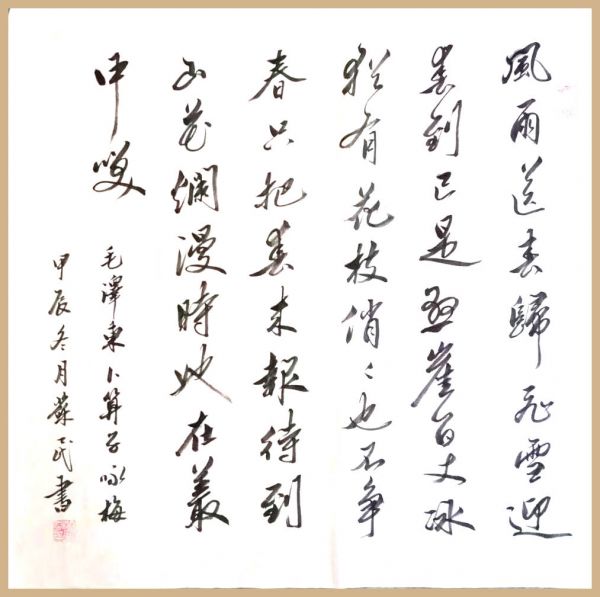 風雨送春歸飛雪迎
春到已是懸崖百丈冰
猶有花枝俏〻也不争
春只把春来報待到
山花爛漫時她在叢
中笑
毛澤東卜算子咏梅
甲辰冬月蘇民書